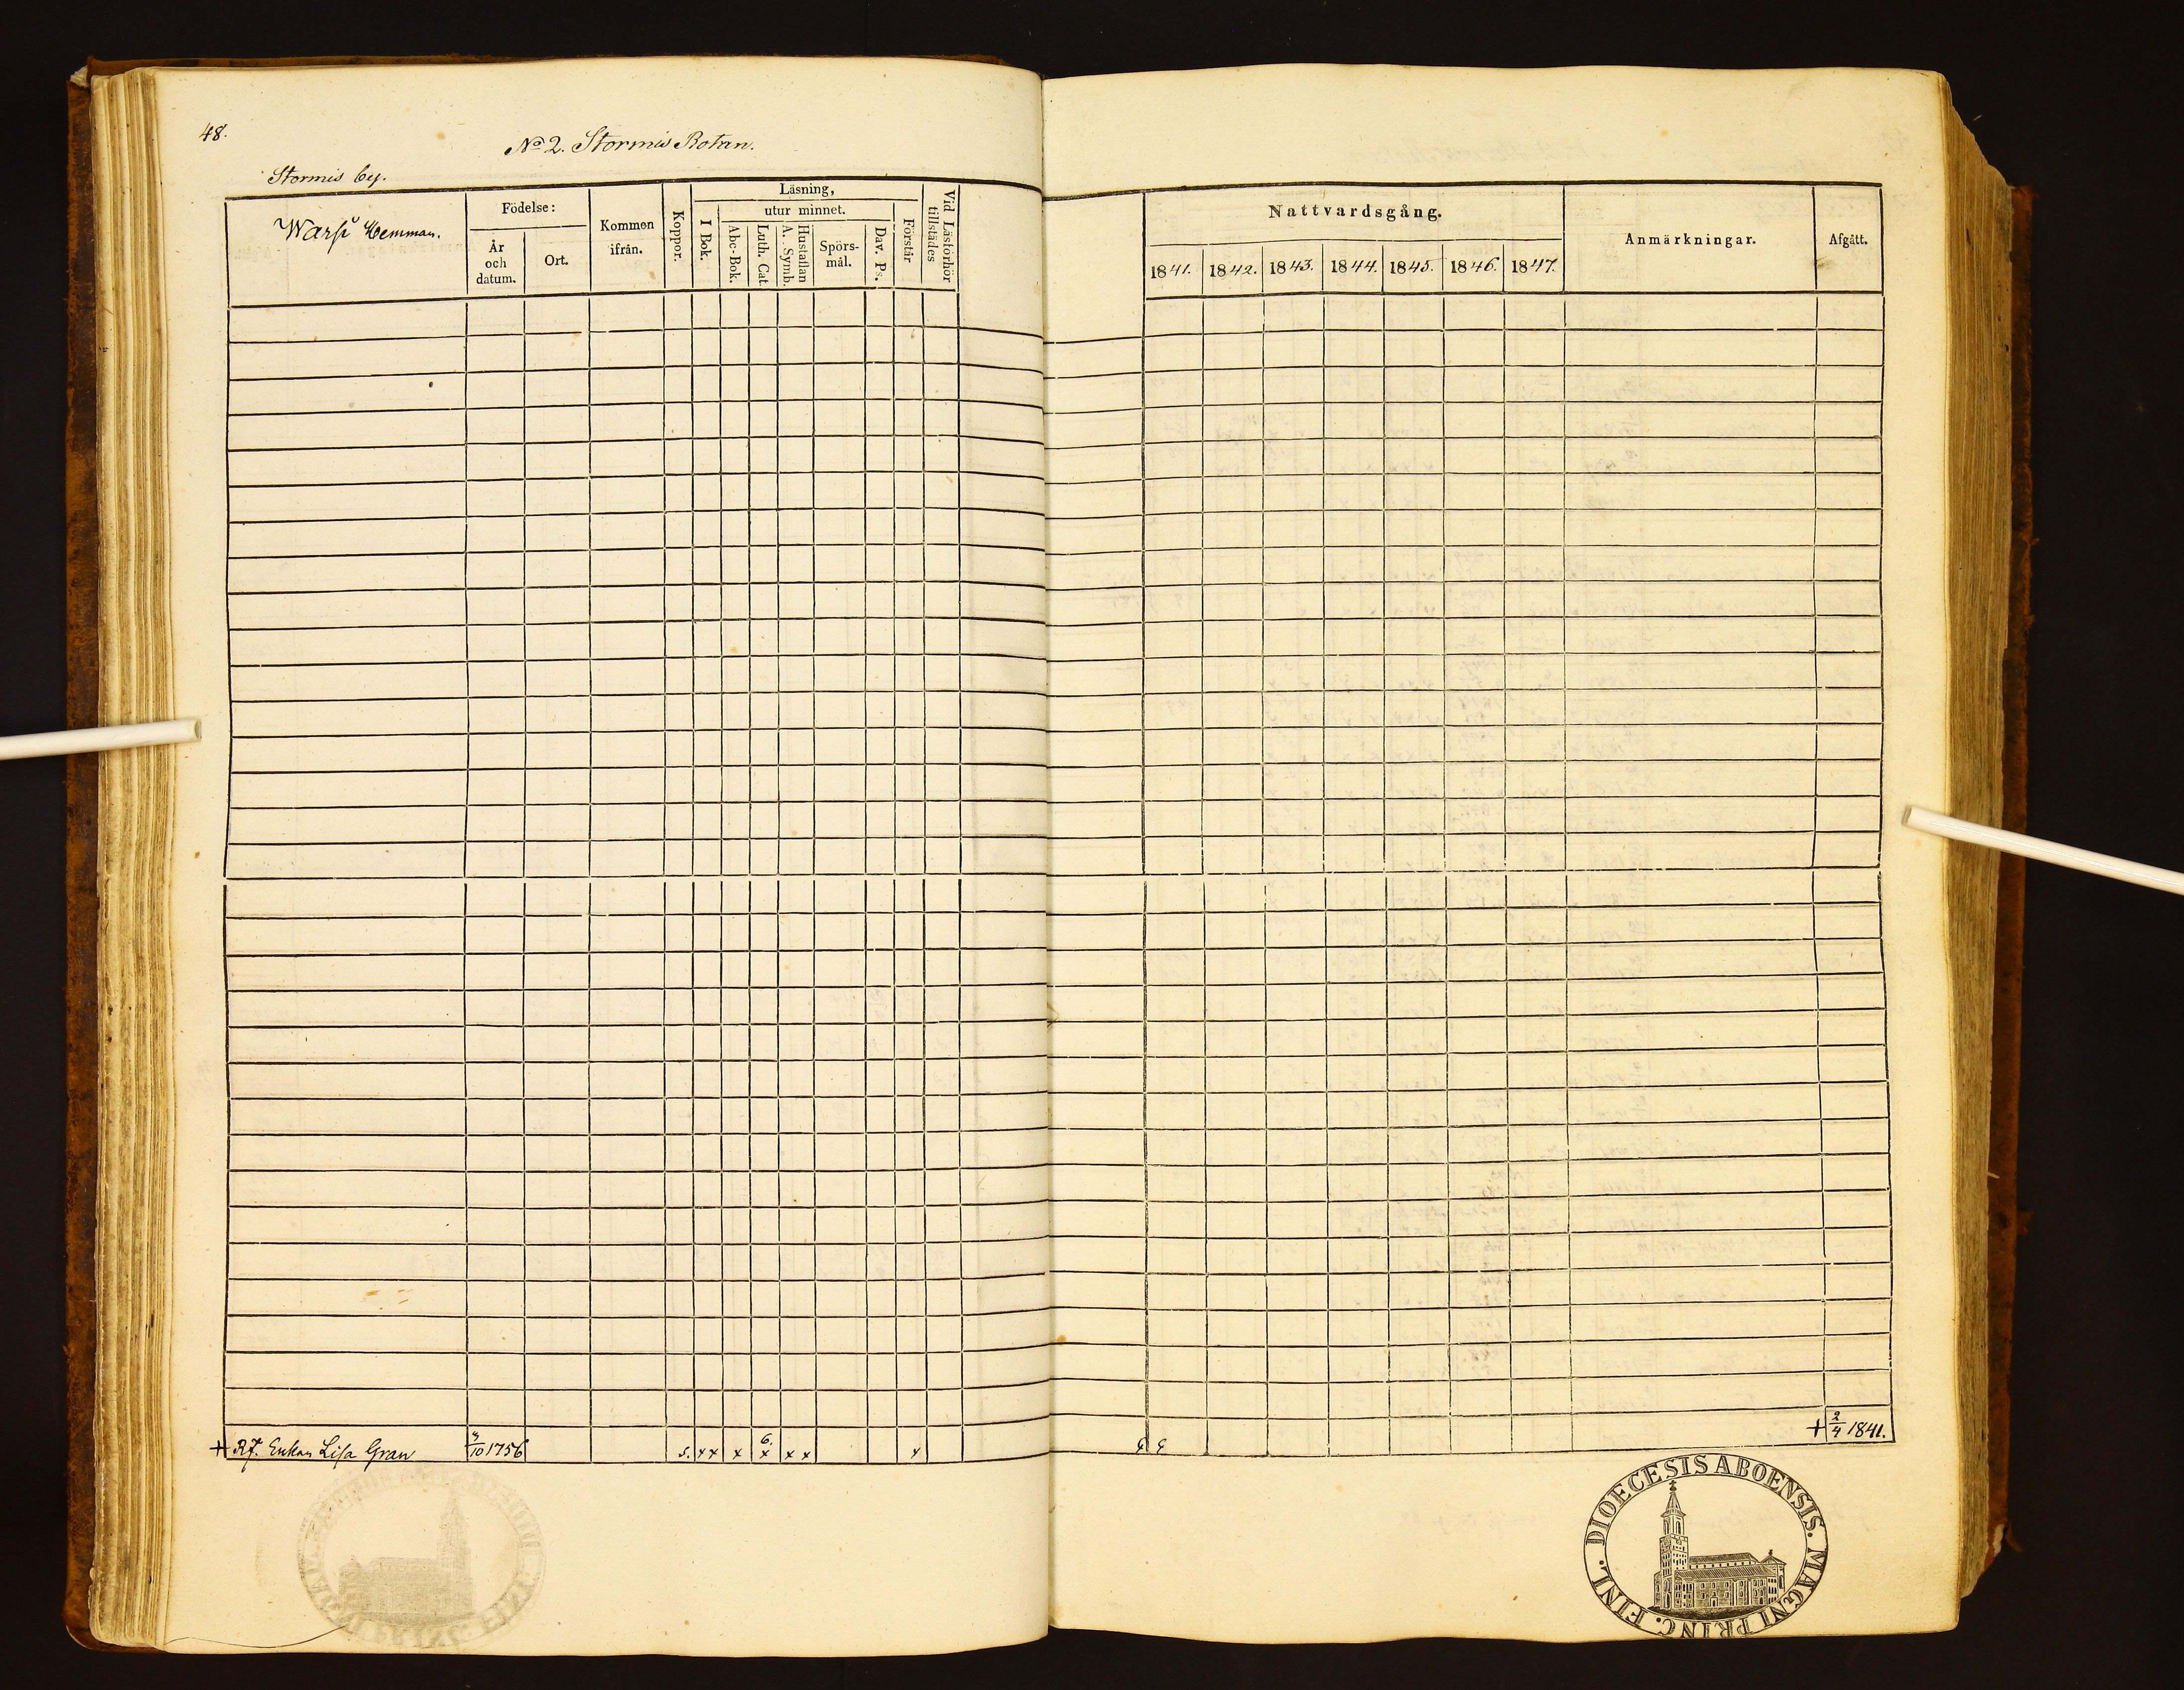 48.
No 2. Stormis Rotan.
Stormis by.
Hemman.
Födelse:
År
och
datum.
Ort.
Kommen
ifrån.
Koppor.
Läsning,
I Bok.
utur minnet.
Abc-Bok.
Luth. Cat
Hustaflan
A. Symb.
Spörs-
mål.
Dav. Ps.
Förstår
Vid Läsförhör
tillstädes
Nattvardsgång.
1841. 1842. 1843. 1844. 1845. 1846. 1847.
Anmärkningar.
Afgått.
Enkan Lisa Gran 1756 s. x x x 6. x x x x
+ 2/4 1841.
DIOECESIS ABOENSIS. MAGNI PRINC. FINL.